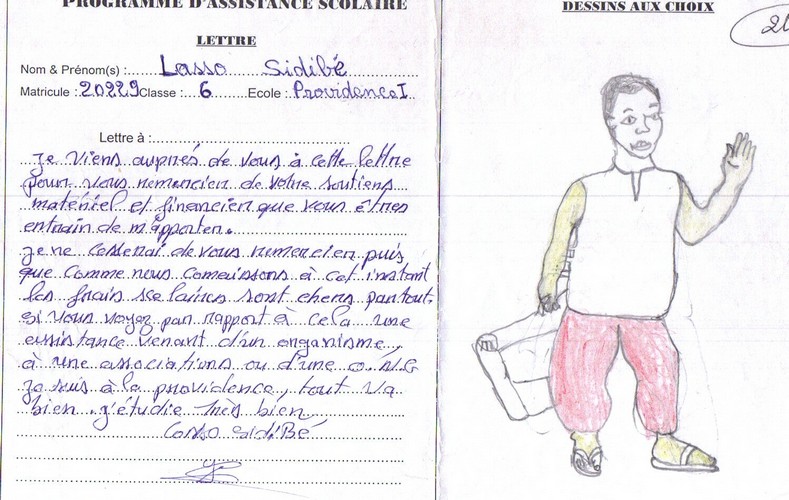 PROGRAMME D'ASSISTANCE SCOLAIRE
LETTRE
Nom & Prénom(s) : Lasso Sidibé
Matricule : 20229 Classe : 6 Ecole : Providence I
Lettre à :
Je viens auprès de vous à cette lettre
pour vous remercier de votre soutiens
matériel et financier que vous êtres
entrain de m'apporter.
Je ne cesserai de vous remercier puis
que comme nous connaissons à cet instant
les frais scolaires sont chers partout.
si vous voyez par rapport à cela une
assistance venant d'un organisme,
à une associations ou d'une O.N.G
Je suis à la providence, tout va
bien. j'étudie très bien
Lasso Sidibé
DESSINS AUX CHOIX